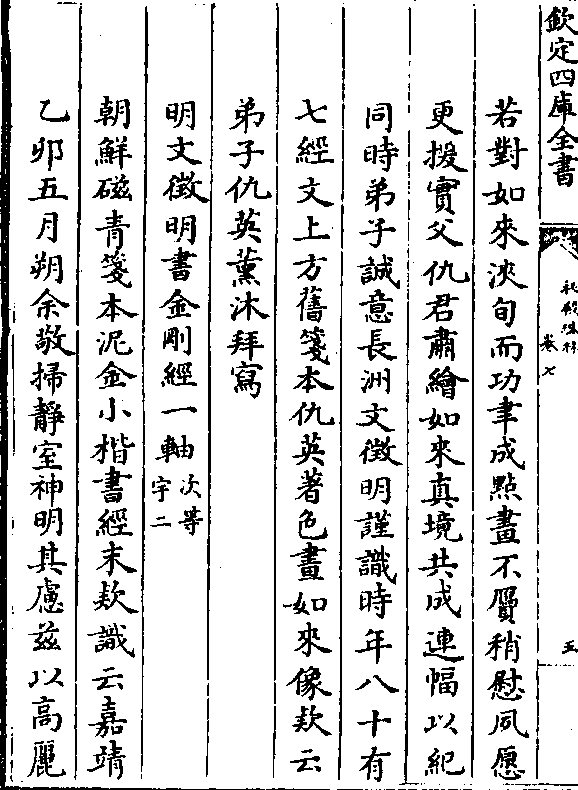 欽定四庫全書
秘殿珠林
卷七
五
若對如來浹旬而功聿成點畫不爽稍慰夙愿
更援實父仇君肅繪如來真境共成連幅以紀
同時弟子誠意長洲文徵明謹識時年八十有
七經文上方舊箋本仇英著色畫如來像欵云
弟子仇英薰沐拜寫
明文徵明書金剛經一軸次等字二
朝鮮磁青箋本泥金小楷書經末欵識云嘉靖
乙卯五月朔余敬掃靜室神明其慮兹以高麗